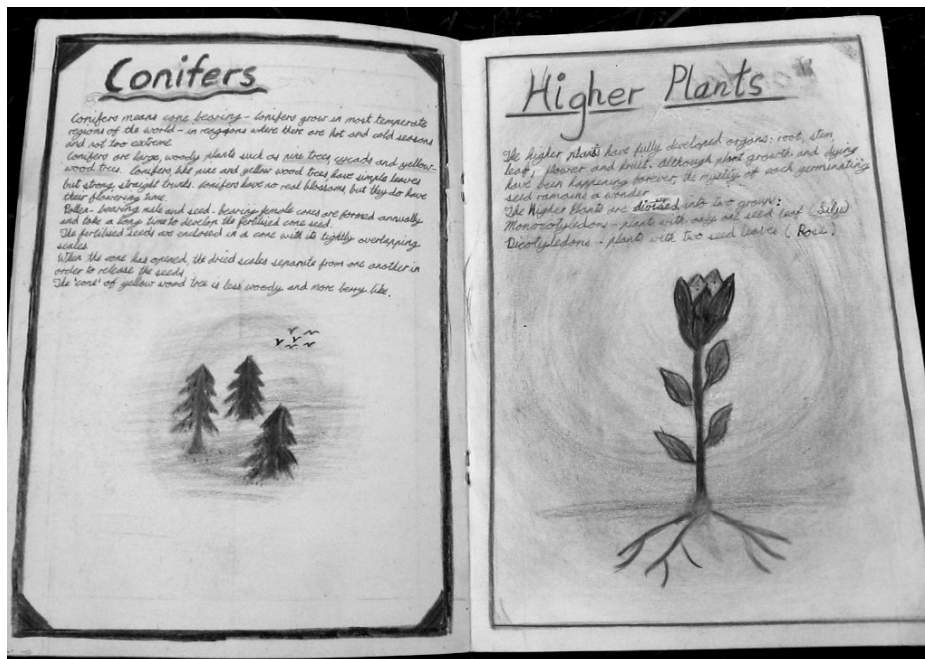 Conifers
Conifers means cone bearing - Conifers grow in most temperate
regions of the world - in reagions where there are hot and cold seasons
and not too extreme.
Conifers are large, woody plants such as pine trees, cycads and yellow-
wood trees. Conifers like pine and yellow wood trees have simple leaves
but strong, straight trunks. Conifers have no real blossoms, but they do have
their flowering time.
Pollen - bearing male and seed - bearing female cones are formed annually
and take a long time to develop the fertilised cone seed.
The fertilised seeds are enclosed in a cone with its tightly overlapping
scales.
When the cone has opened, the dried scales separate from one another in
order to release the seeds.
The 'cone' of yellow wood tree is less woody and more berry like.
Higher Plants
The higher plants have fully developed organs: root, stem
leaf, flower and fruit. although plant growth and dying
have been happening forever, the mystery of each germinating
seed ramains a wonder.
The Higher Plants are divided into two groups:
Monocotyledons - plants with only one seed leaf
Dicotyledons - plants with two seed leaves (Rose)